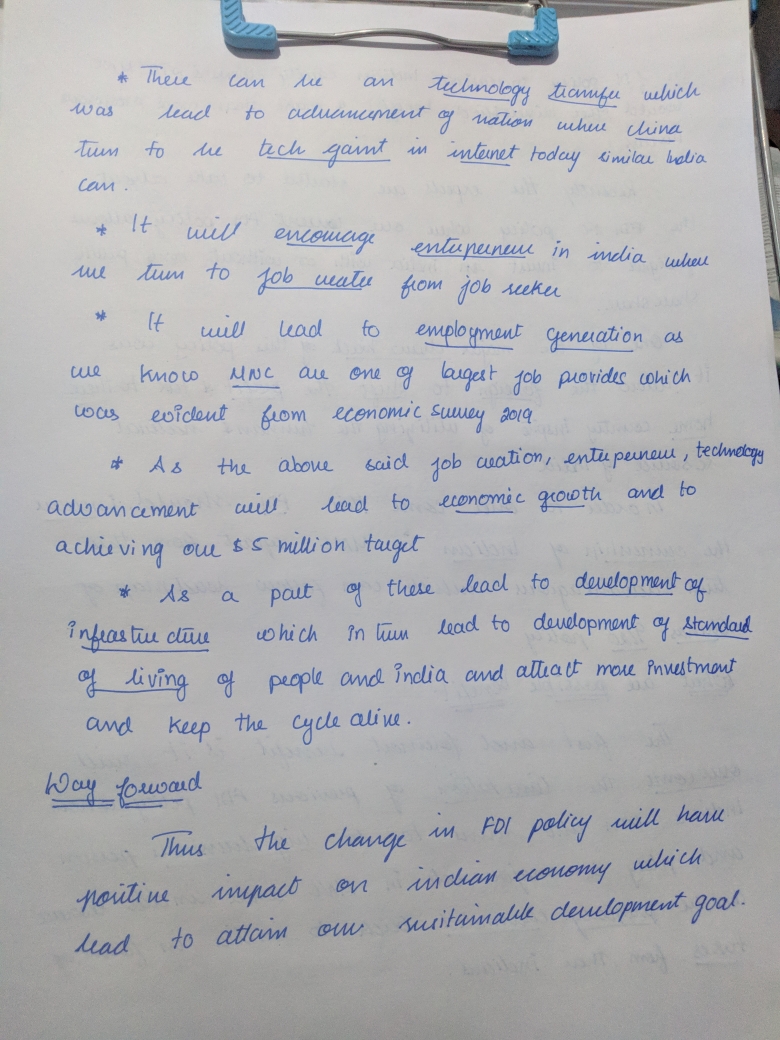 * There can be an technology transfer which
was lead to advancement of nation where china
turn to be tech gaint in internet today similar India
can.
* It will encourage enterpreneur in india where
we turn to job creater from job seeker
* It will lead to employment generation as
we know MNC are one of largest job provides which
was evident from economic survey 2019
* As the above said job creation, enterpreneur, technology
advancement will lead to economic growth and to
achieving our $ 5 million target
* As a part of these lead to development of
infrastructure which in turn lead to development of standard
of living of people and india and attract more investment
and keep the cycle alive.
Way forward
Thus the change in FDI policy will have
positive impact on indian economy which
lead to attain our sustainable development goal.